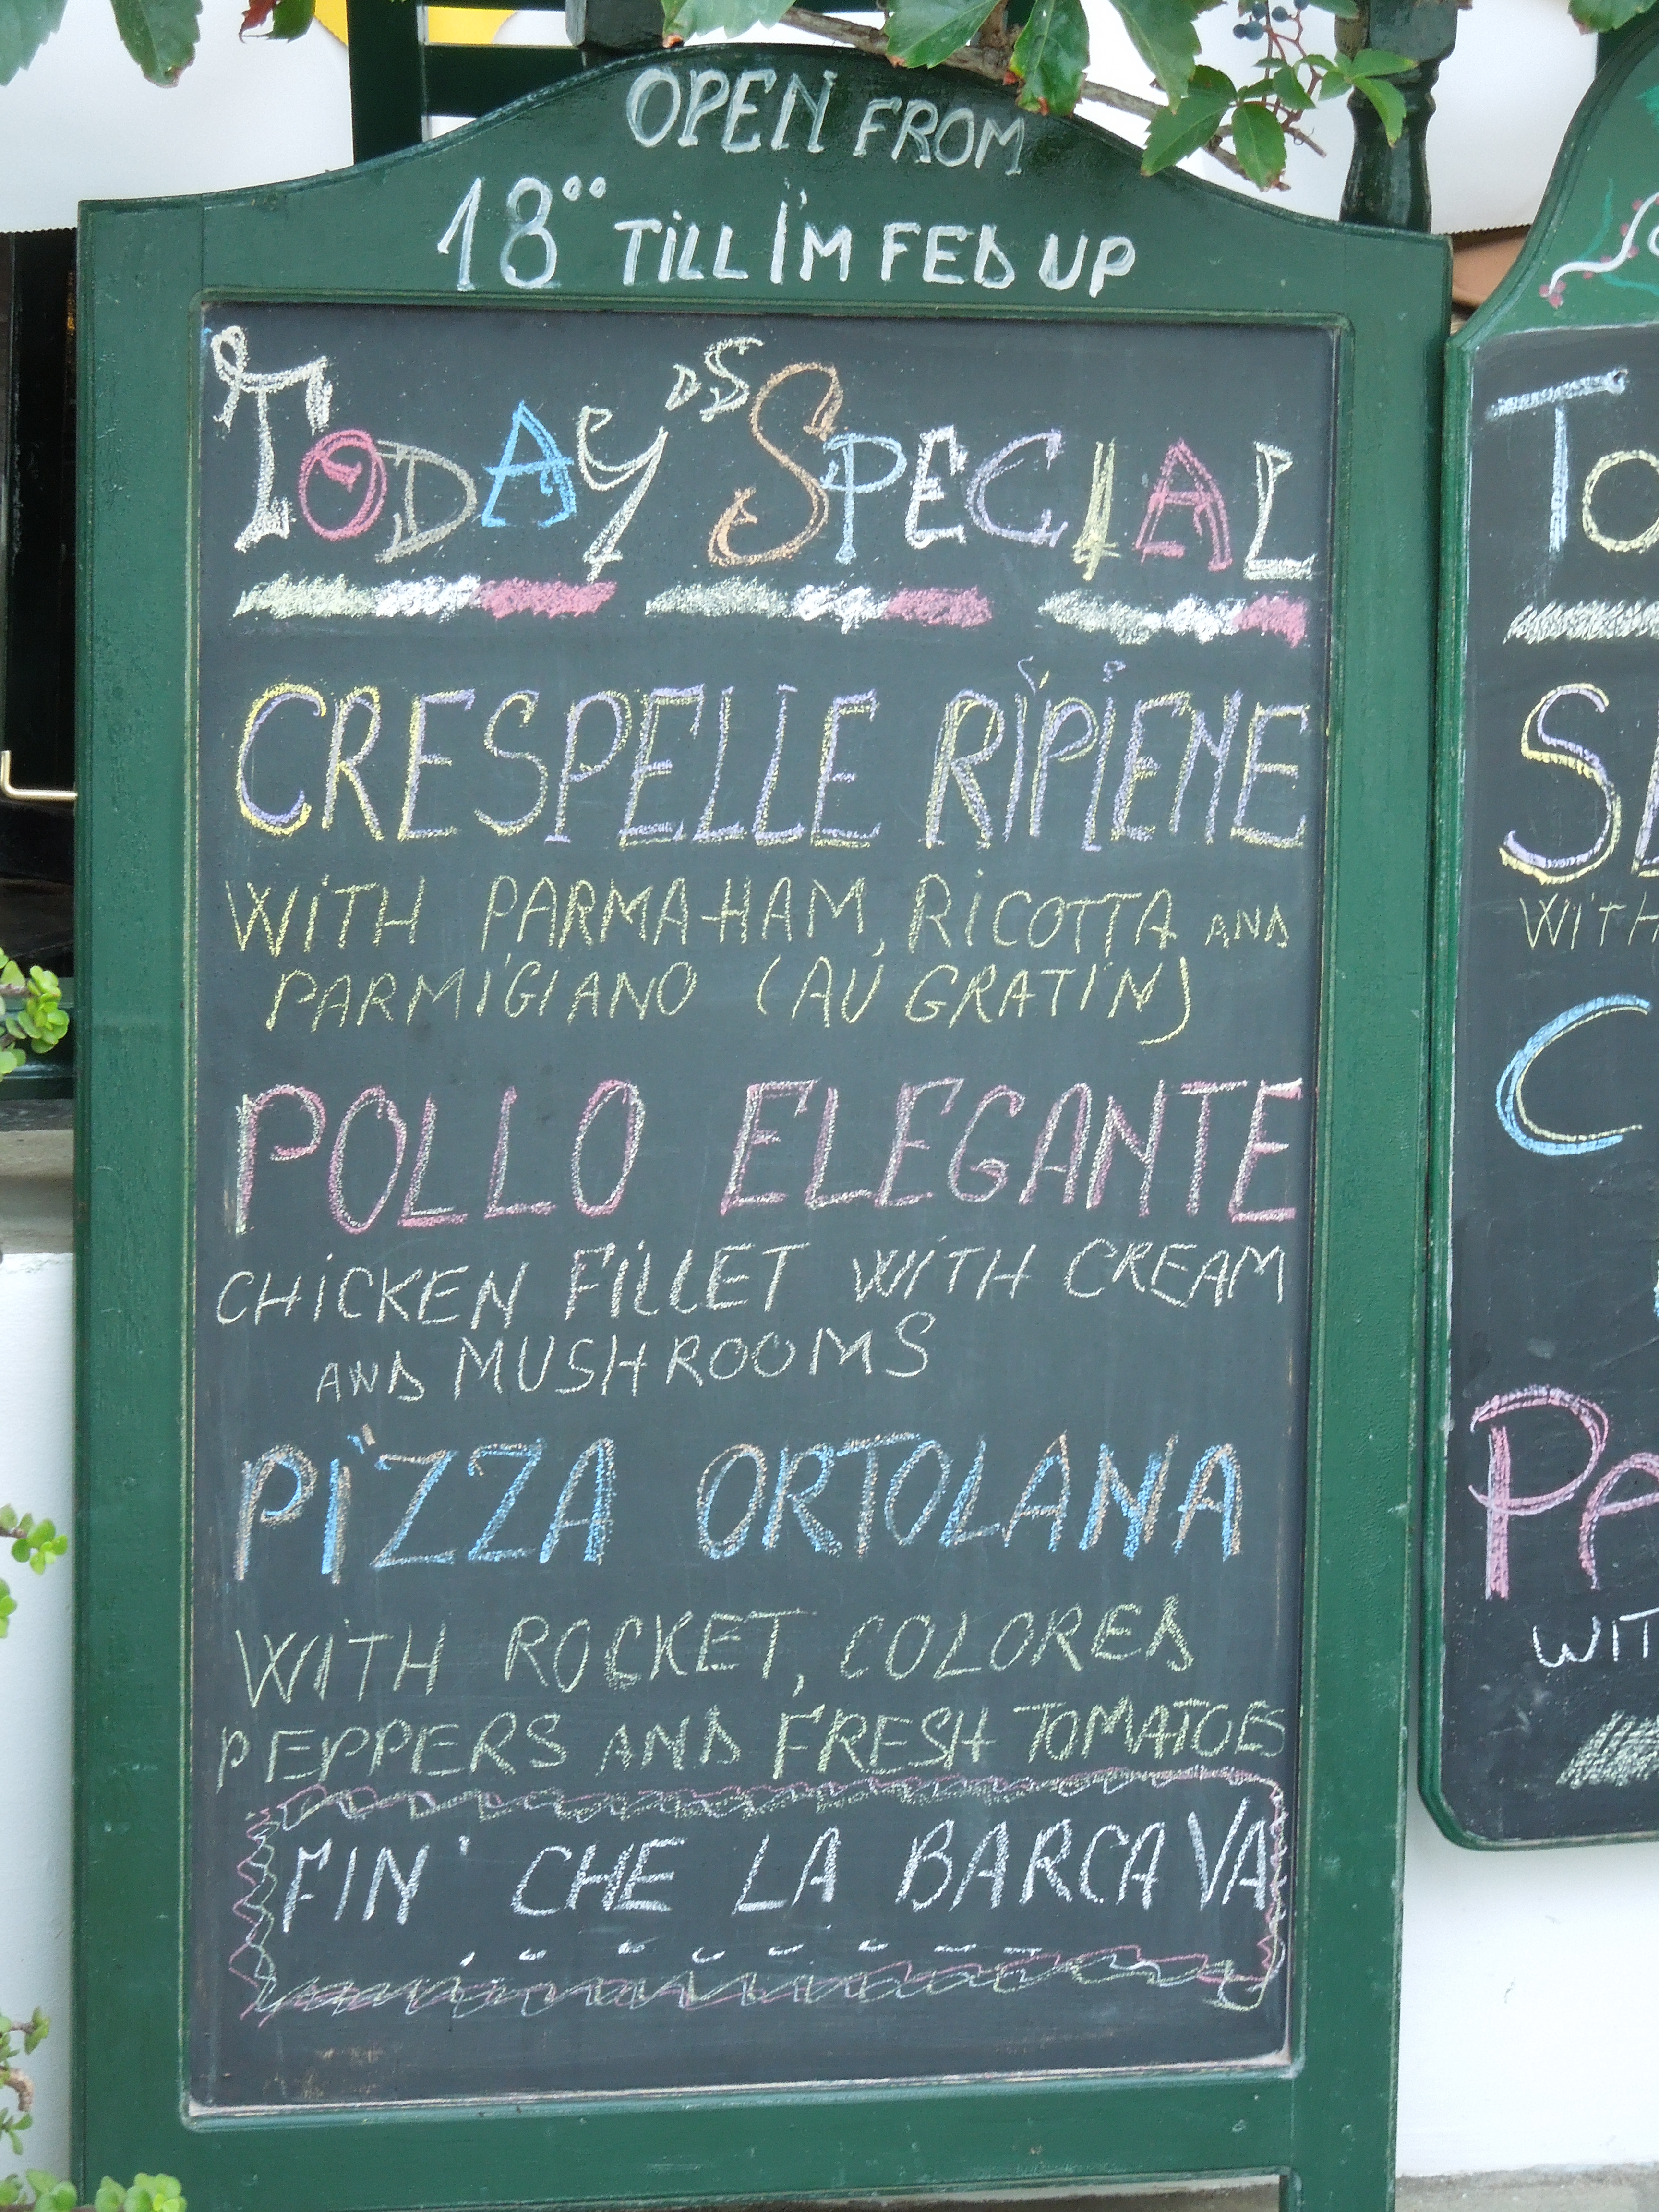 OPEN FROM
18°° TiLL I'M FED UP
TODAY'S SPECIAL
CRESPELLE RIPIENE
WiTH PARMA-HAM, RiCOTTA AND
PARMIGIANO (AU GRATIN)
POLLO ELEGANTE
CHiCKEN FiLLET WiTH CREAM
AND MUSHROOMS
PiZZA ORTOLANA
WiTH ROCKET, COLORED
PEPPERS AND FRESH TOMATOES
FIN' CHE LA BARCA VA
WITH